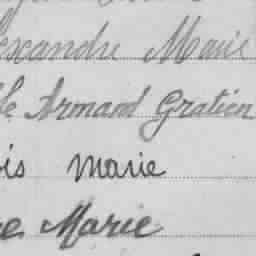 exandre Marie
le Armand Gratien
is Marie
e Marie